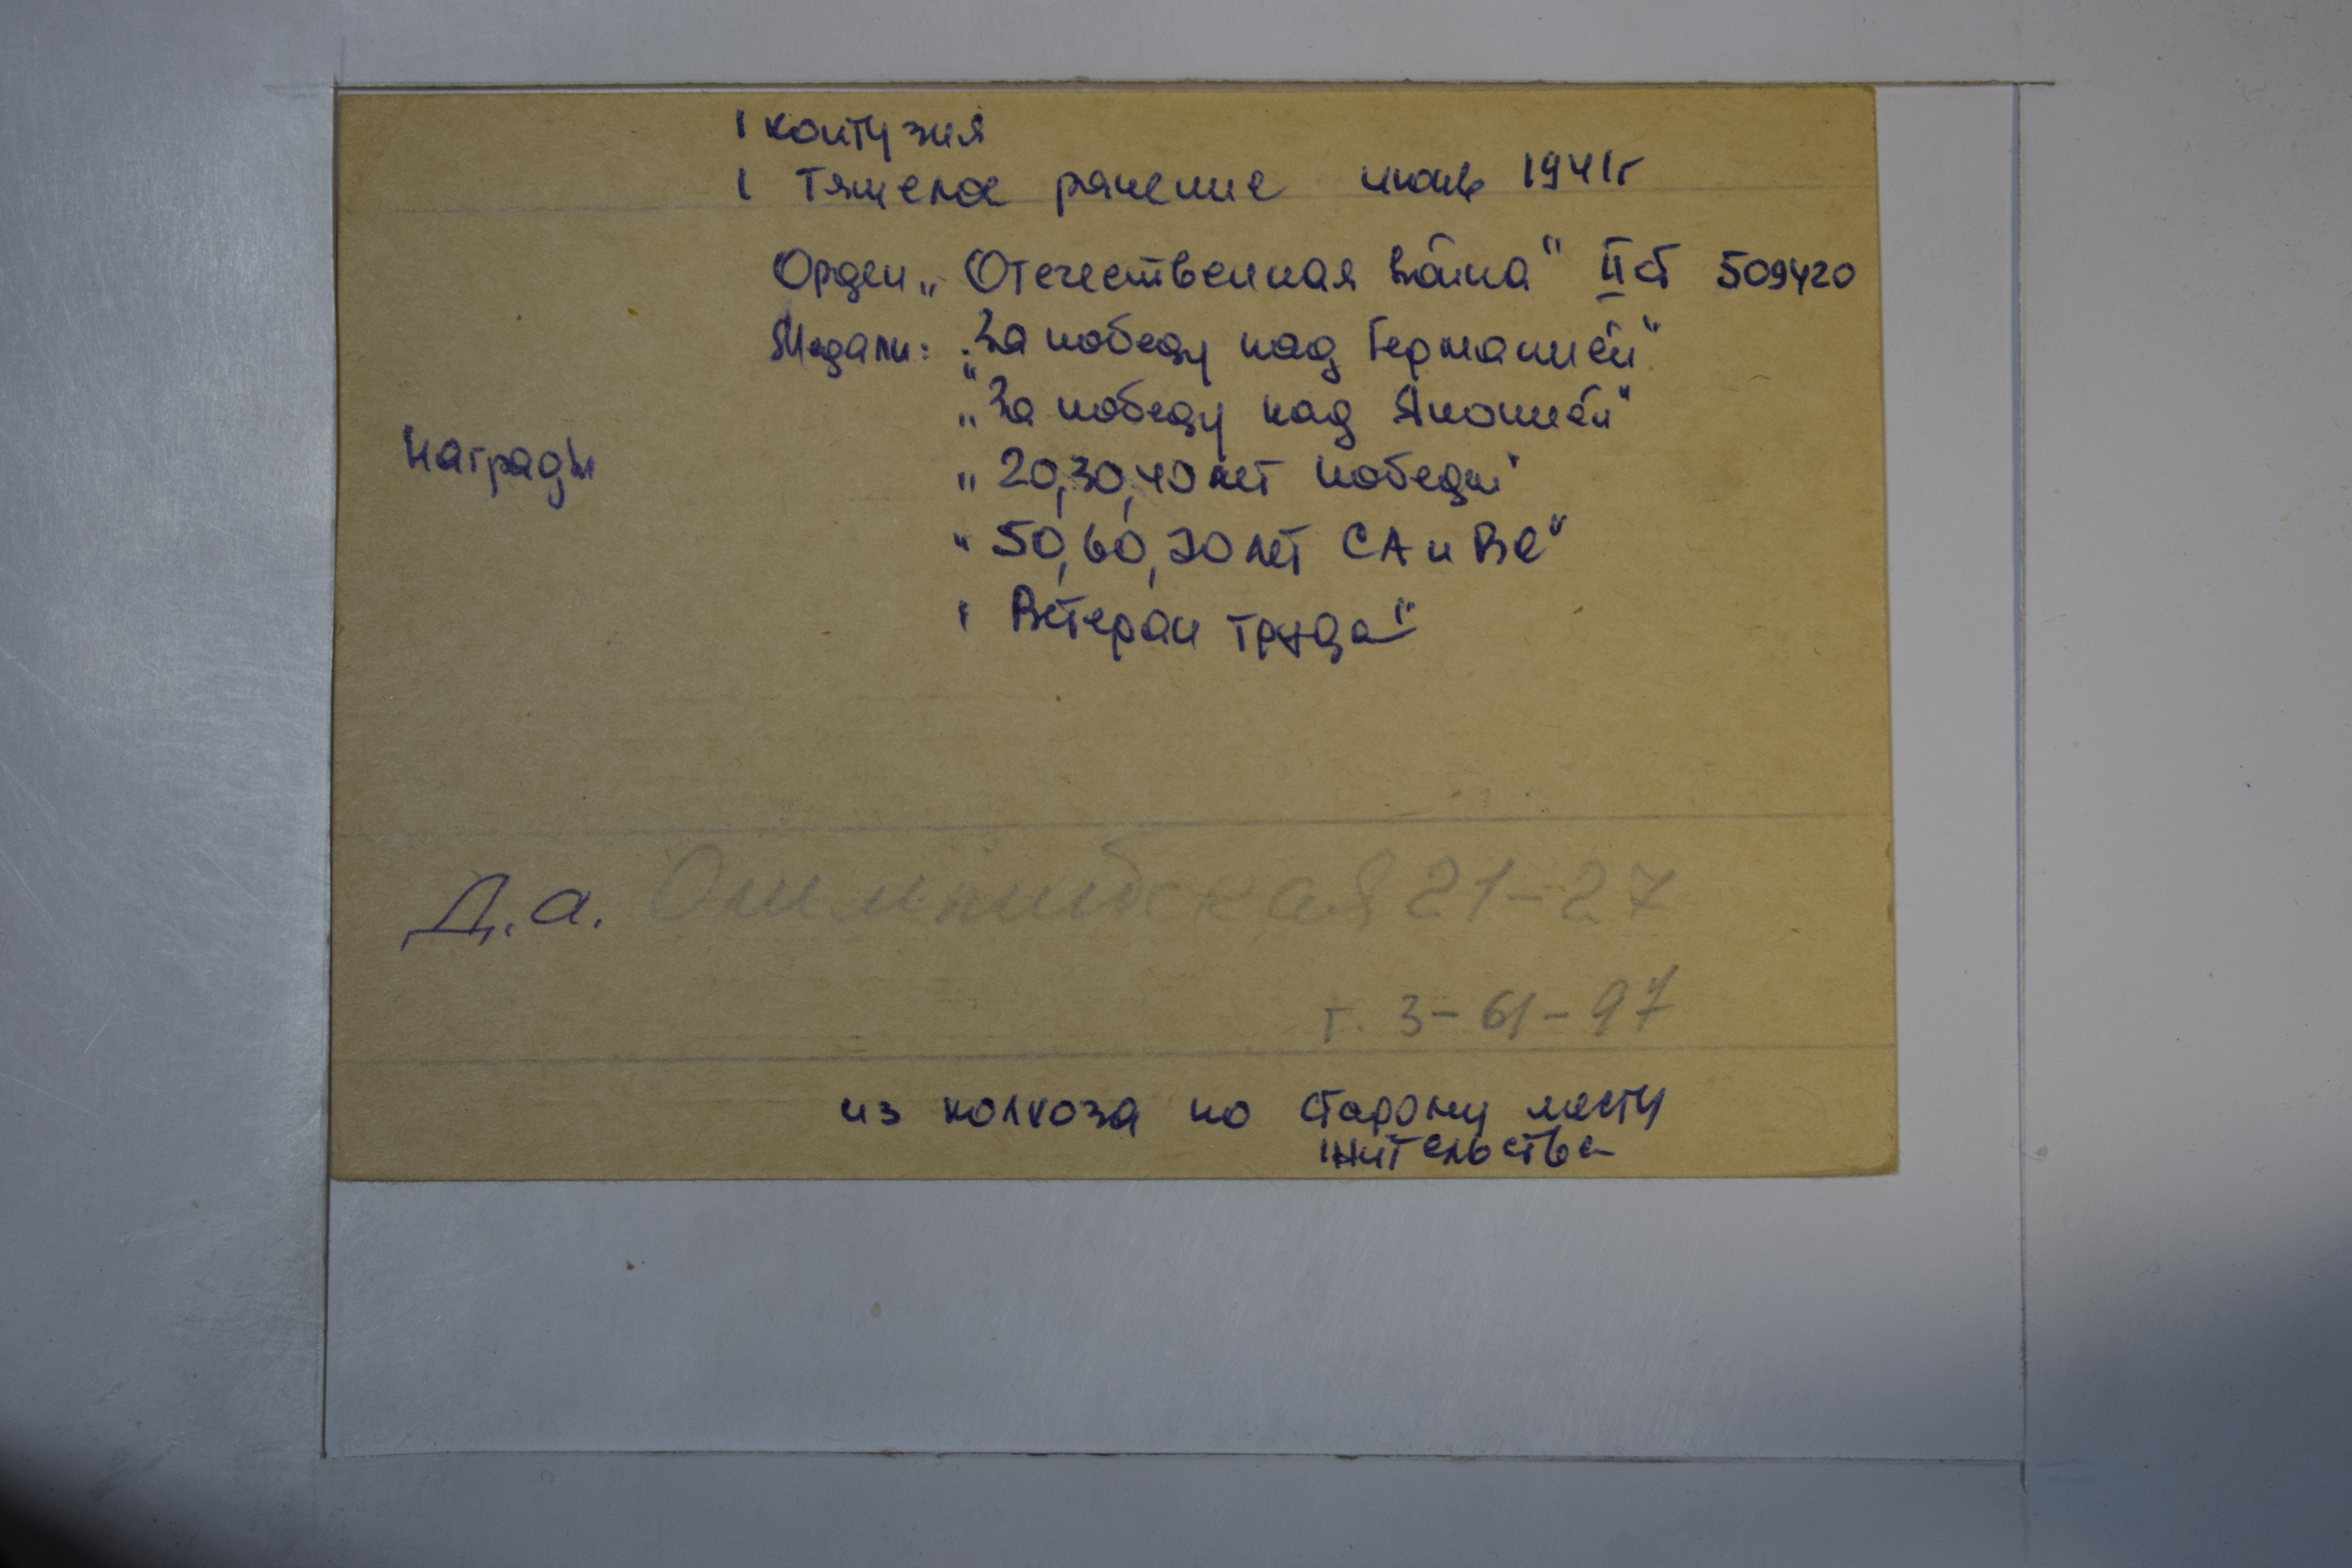 1 контузия
1 тяжелое ранение июнь 1941г
Орден „Отечественная война" II ст 509420
Медали: „За победу над Германией"
„За победу над Японией"
Награды
„20,30,40 лет победы"
"50,60,70 лет СА и ВС"
" Ветеран труда"
Д.а. Олимпийская 21-27
т. 3-61-97
из колхоза по старому месту
жительства